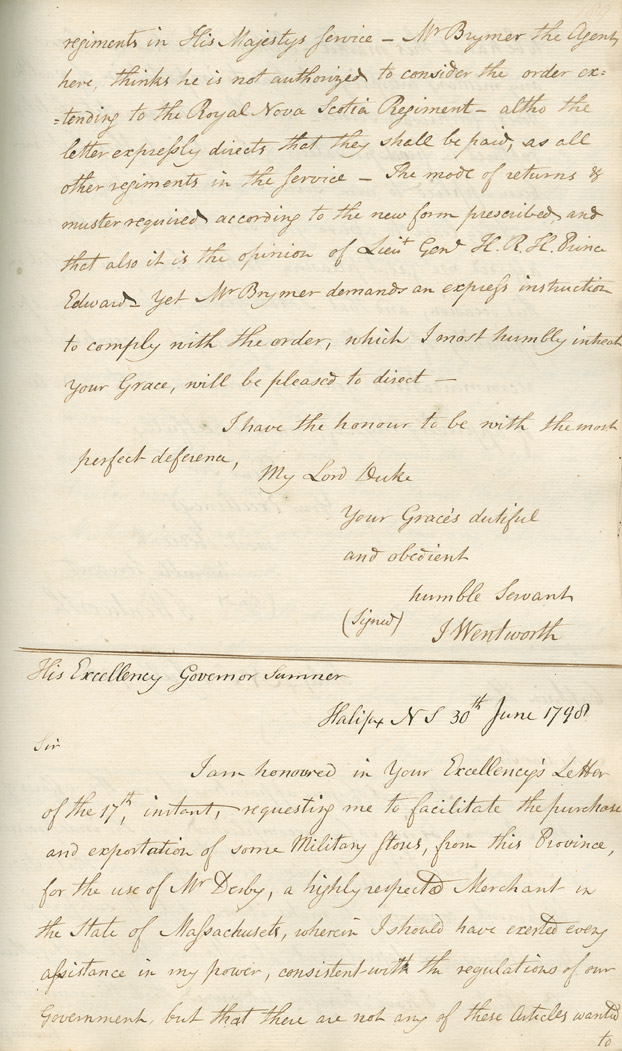 regiments in His Majestys Service – Mr Brymer the Agent,
here, thinks he is not authorized to consider the order ex=
=tending to the Royal Nova Scotia Regiment – altho the
letter expressly directs that they shall be paid, as all
other regiments in the Service – The mode of returns &
muster required according to the new form prescribed, and
that also it is the opinion of Lieut Genl H. R. H. Prince
Edward – Yet Mr Brymer demands an express instruction
to comply with the order, which I most humbly intreat
Your Grace, will be pleased to direct –
I have the honour to be with the most
perfect deference,
My Lord Duke
Your Grace's dutiful
and obedient
humble Servant
(Signed) J Wentworth
His Excellency Governor Sumner
Halifax N S 30th June 1798
Sir
I am honoured in Your Excellency's Letter
of the 17th, instant, requesting me to facilitate the purchase
and exportation of some Military Stores, from this Province,
for the use of Mr Derby, a highly respected Merchant in
the State of Massachusets, wherein I should have exerted every
assistance in my power, consistent with the regulations of our
Government, but that there are not any of these Articles wanted
to